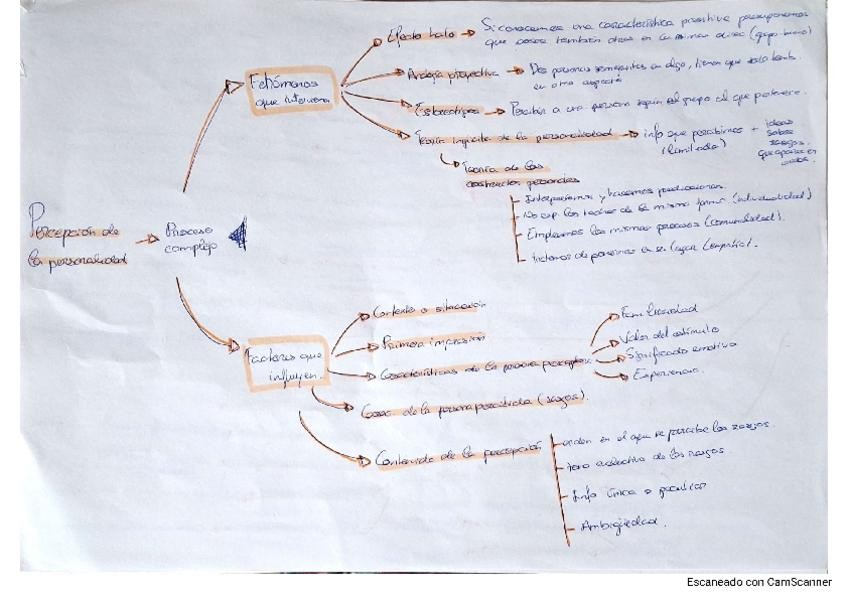 Percepción de
la personalidad
Proceso
complejo
Fenómenos
que intervienen
Efecto halo
Si conocemos una característica positiva presuponemos
que posee también otras en la misma
Analogía proyectiva
Dos personas semejantes en algo, tienen que serlo tamb.
en otro aspecto
Estereotipos
Perciben a una persona según el grupo al que pertenece.
Teoría implícita de la personalidad
info que percibimos + ideas
(limitada) sobre
rasgos
que aparecen
Teoría de los
constructos personales
Interpretamos y hacemos predicciones.
No exp. los hechos de la misma forma (individualidad)
Empleamos los mismos procesos (comunidad).
tratamos de ponernos en su lugar (empatía).
Factores que
influyen.
Contexto o situación
Primera impresión
Características de la persona perceptora
Familiaridad
Valor del estímulo
Significado emotivo
Experiencia.
Carac. de la persona percibida (rasgos).
Contenido de la percepción
orden en el que se percibe los rasgos.
tono evaluativo de los rasgos
Info única o
Ambigüedad.
Escaneado con CamScanner